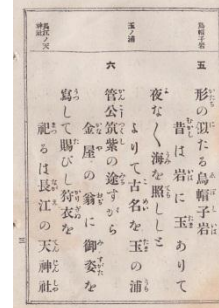 烏帽子岩
五 形の似たる烏帽子岩
昔は岩に玉ありて
夜な〱海を照しゝと
玉ノ浦
よりて古名を玉の浦
六 管公筑紫の途すがら
金屋の翁に御姿を
寫して賜びし狩衣を
長江ノ天神社
祀るは長江の天神社
三